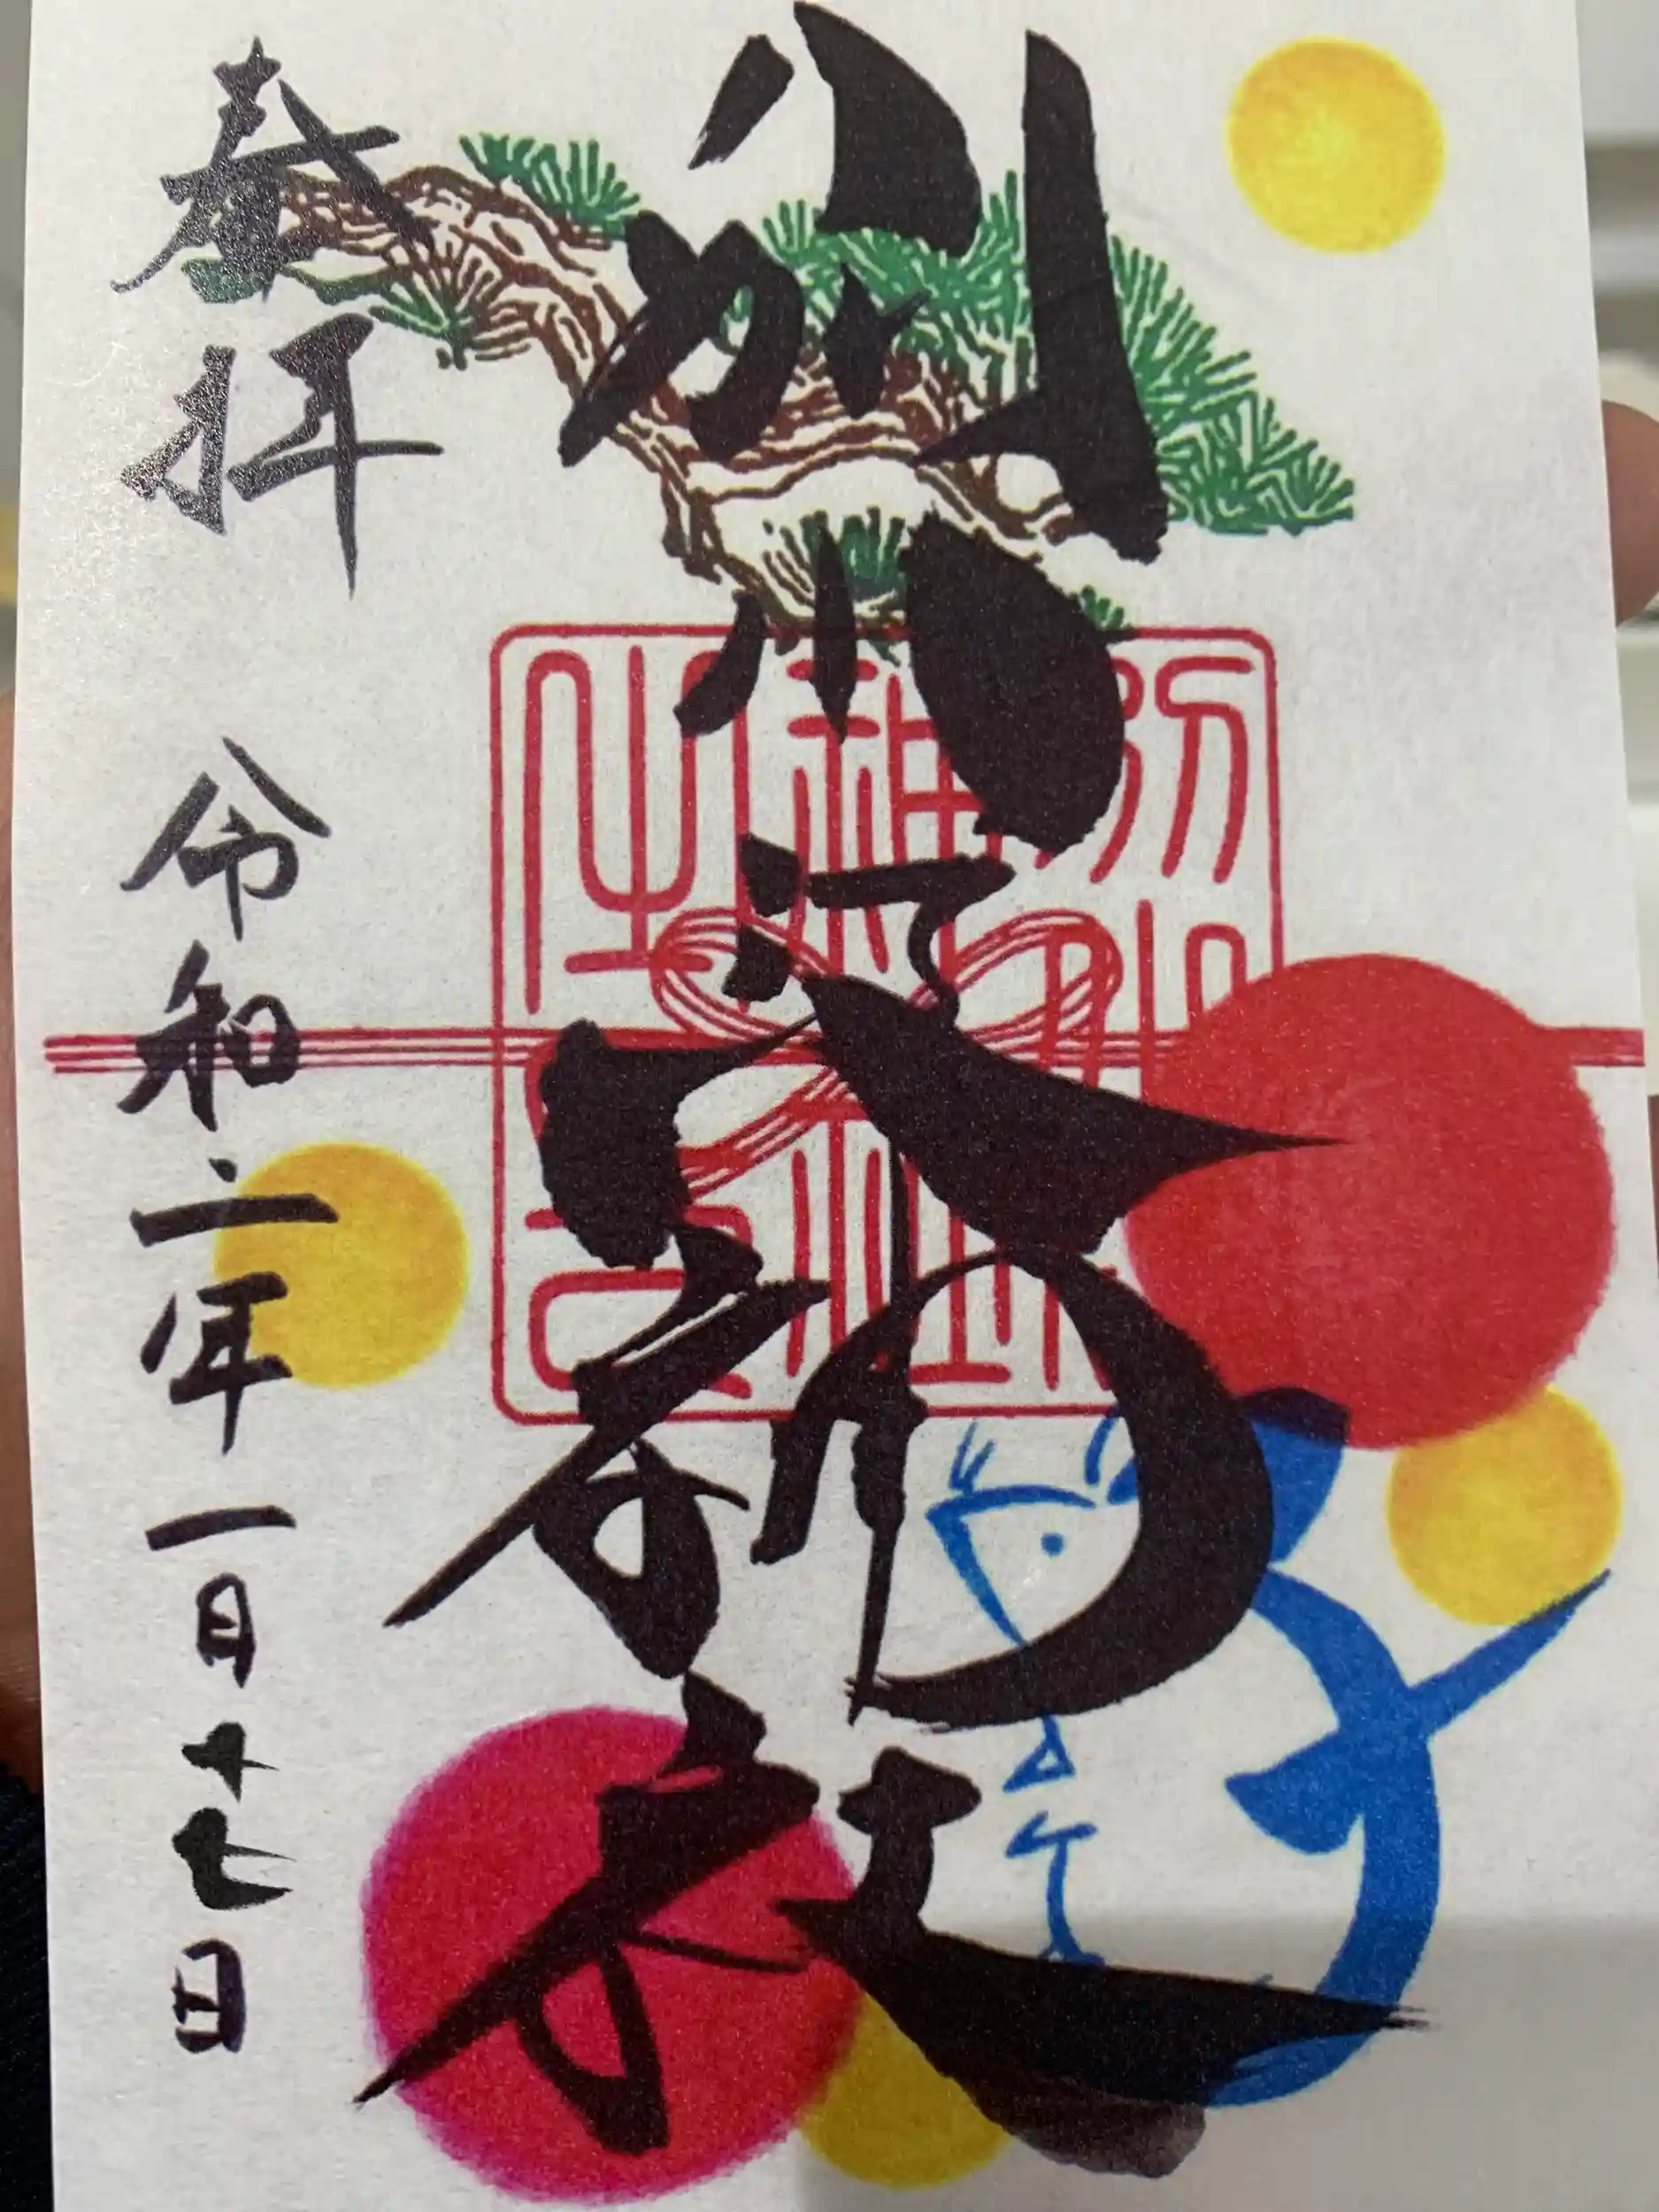 別小江神社
別小江
神社
之印
奉拝 令和二年一月十七日